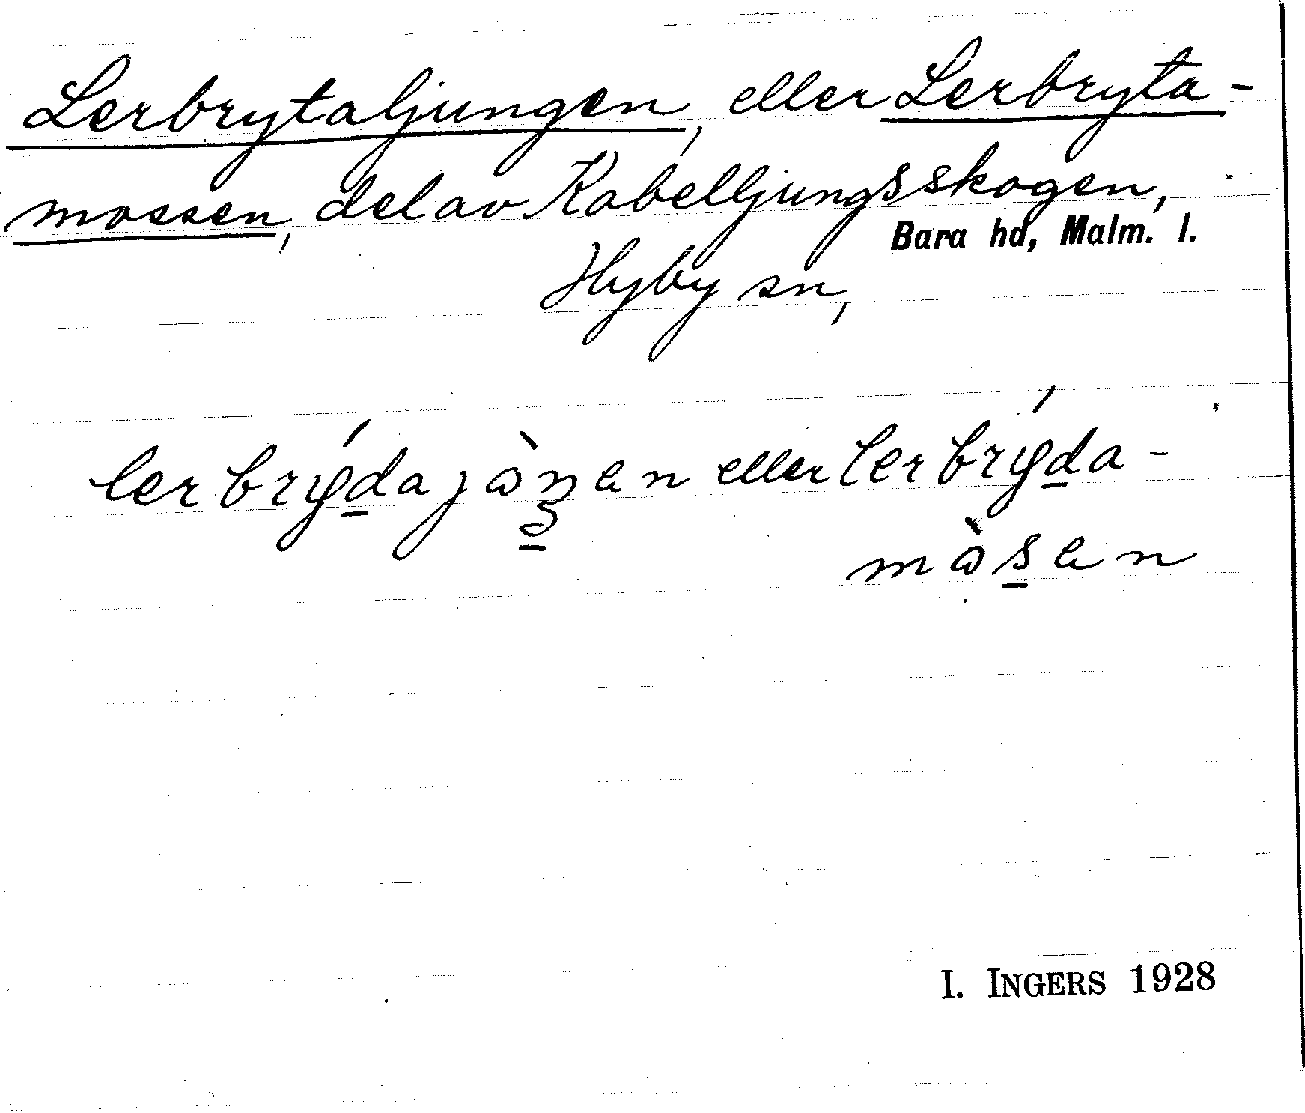 Lerbrytaljungen, eller Lerbryta-
mossen, del av Kabelljungsskogen,
Bara hd, Malm. l.
Hyby sn,
lerbrýdajòŋen eller lerbrýda-
mòsen
I. INGERS 1928